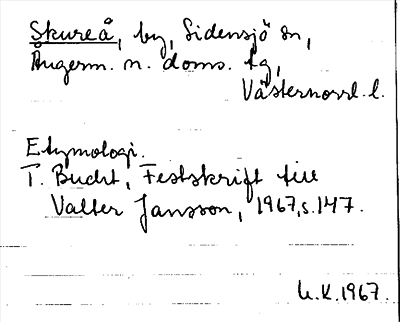 Skureå, by, Sidensjö sn,
Ångerm. n. doms. tg,
Västernorrl. l.
Etymologi.
T. Bucht, Festskrift till
Valter Jansson, 1967, s. 147.
U.K. 1967.